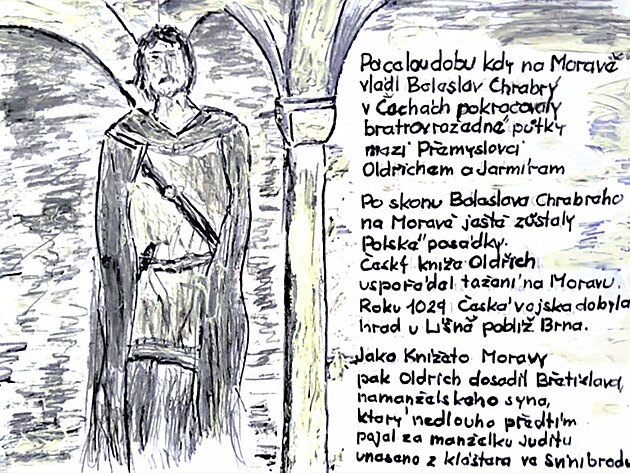 Po celou dobu kdy na Moravě
vládl Boleslav Chrabrý
v Čechach pokračovaly
bratrovražedné půtky
mezi Přemyslovci
Oldřichem a Jarmírem
Po skonu Boleslava Chrabreho
na Moravě ještě zůstaly
Polské posádky.
Český kníže Oldřich
usporádal tažení na Moravu.
Roku 1029 Česká vojska dobyla
hrad u Líšně poblíž Brna.
Jako Knížete Moravy
pak Oldrich dosadil Břetislava,
nemanželskeho syna,
ktorý nedlouho předtím
pojal za manželku Juditu
unesено z kláštera ve Svinibrodu